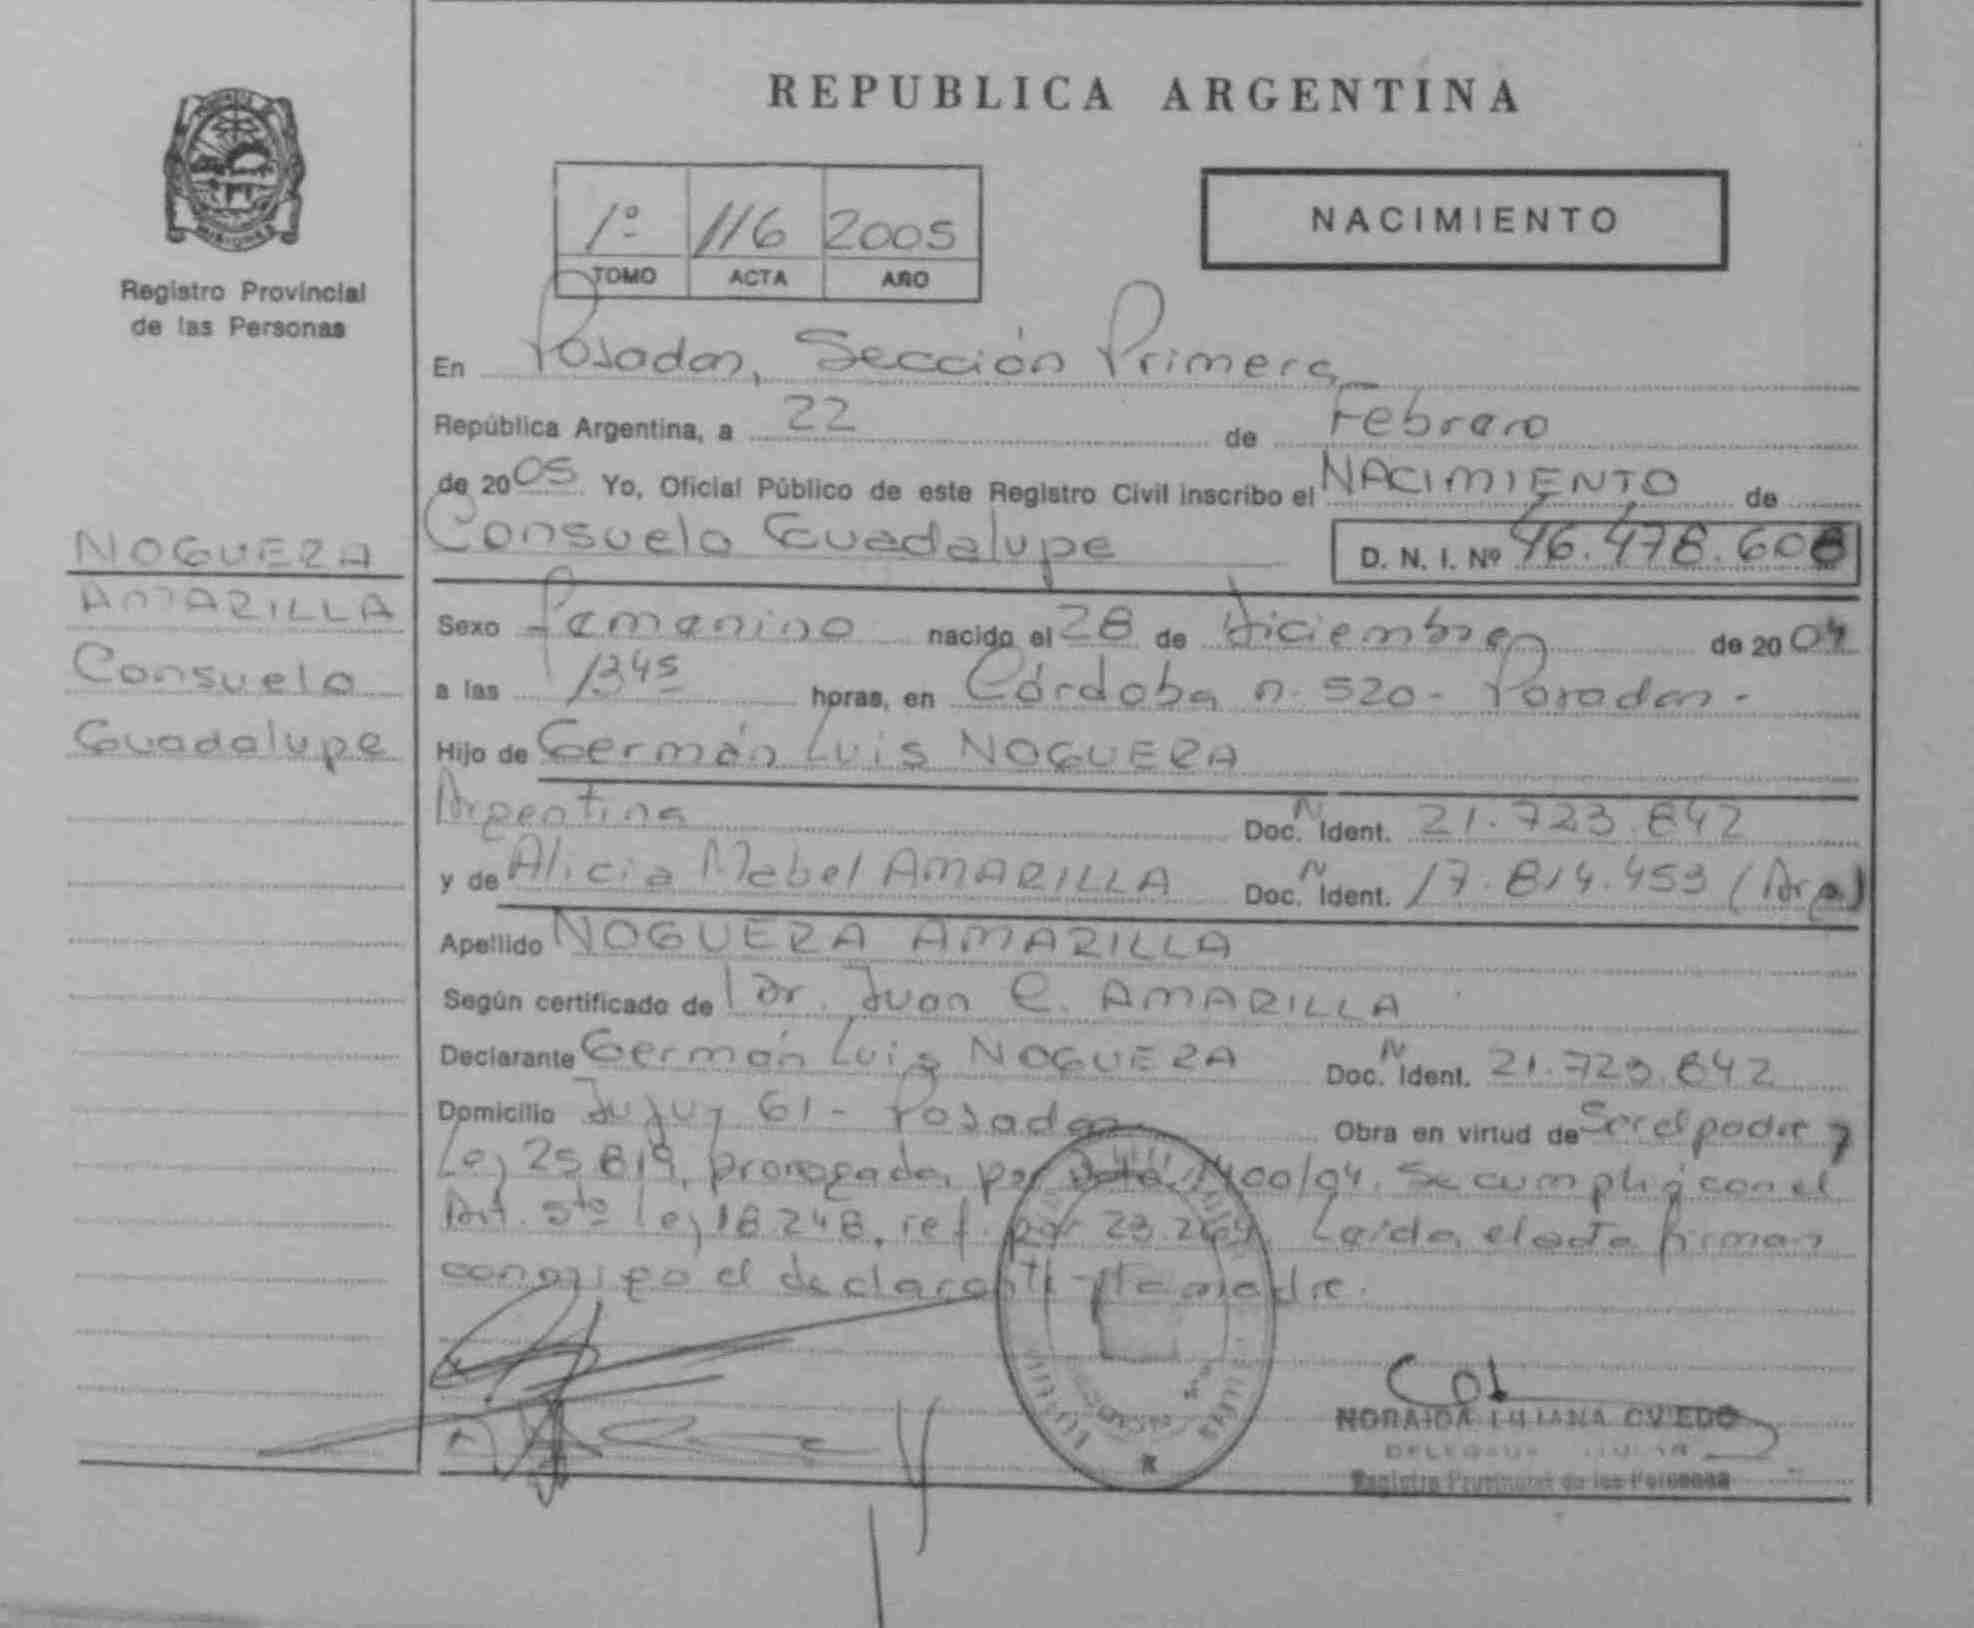 REPUBLICA ARGENTINA
MISIONES
Registro Provincial
de las Personas
1º 116 2005
TOMO ACTA AÑO
NACIMIENTO
En Posadas, Sección Primera
República Argentina, a 22 de Febrero
de 2005 Yo, Oficial Público de este Registro Civil inscribo el NACIMIENTO de
Consuelo Guadalupe D. N. I. Nº 46.478.608
NOGUERA
AMARILLA
Consuelo
Guadalupe
Sexo Femenino nacido el 28 de diciembre de 2004
a las 1345 horas, en Córdoba n. 520 - Posadas -
Hijo de Germán Luis NOGUERA
Argentina Doc. N Ident. 21.723.842
y de Alicia Mabel AMARILLA Doc. N Ident. 17.814.453 (Arg)
Apellido NOGUERA AMARILLA
Según certificado de Dr. Juan C. AMARILLA
Declarante Germán Luis NOGUERA Doc. N Ident. 21.723.842
Domicilio Jujuy 61 - Posadas Obra en virtud de Ser el padre y
Ley 25.819, prorogada por 1400/04. Se cumplió con el
Art. 5to ley 18.248, ref. por 23.264. Leída el acta firman
conmigo el declarante y la madre.
NORAIDA LILIANA OVIEDO
Registro Provincial de las Personas